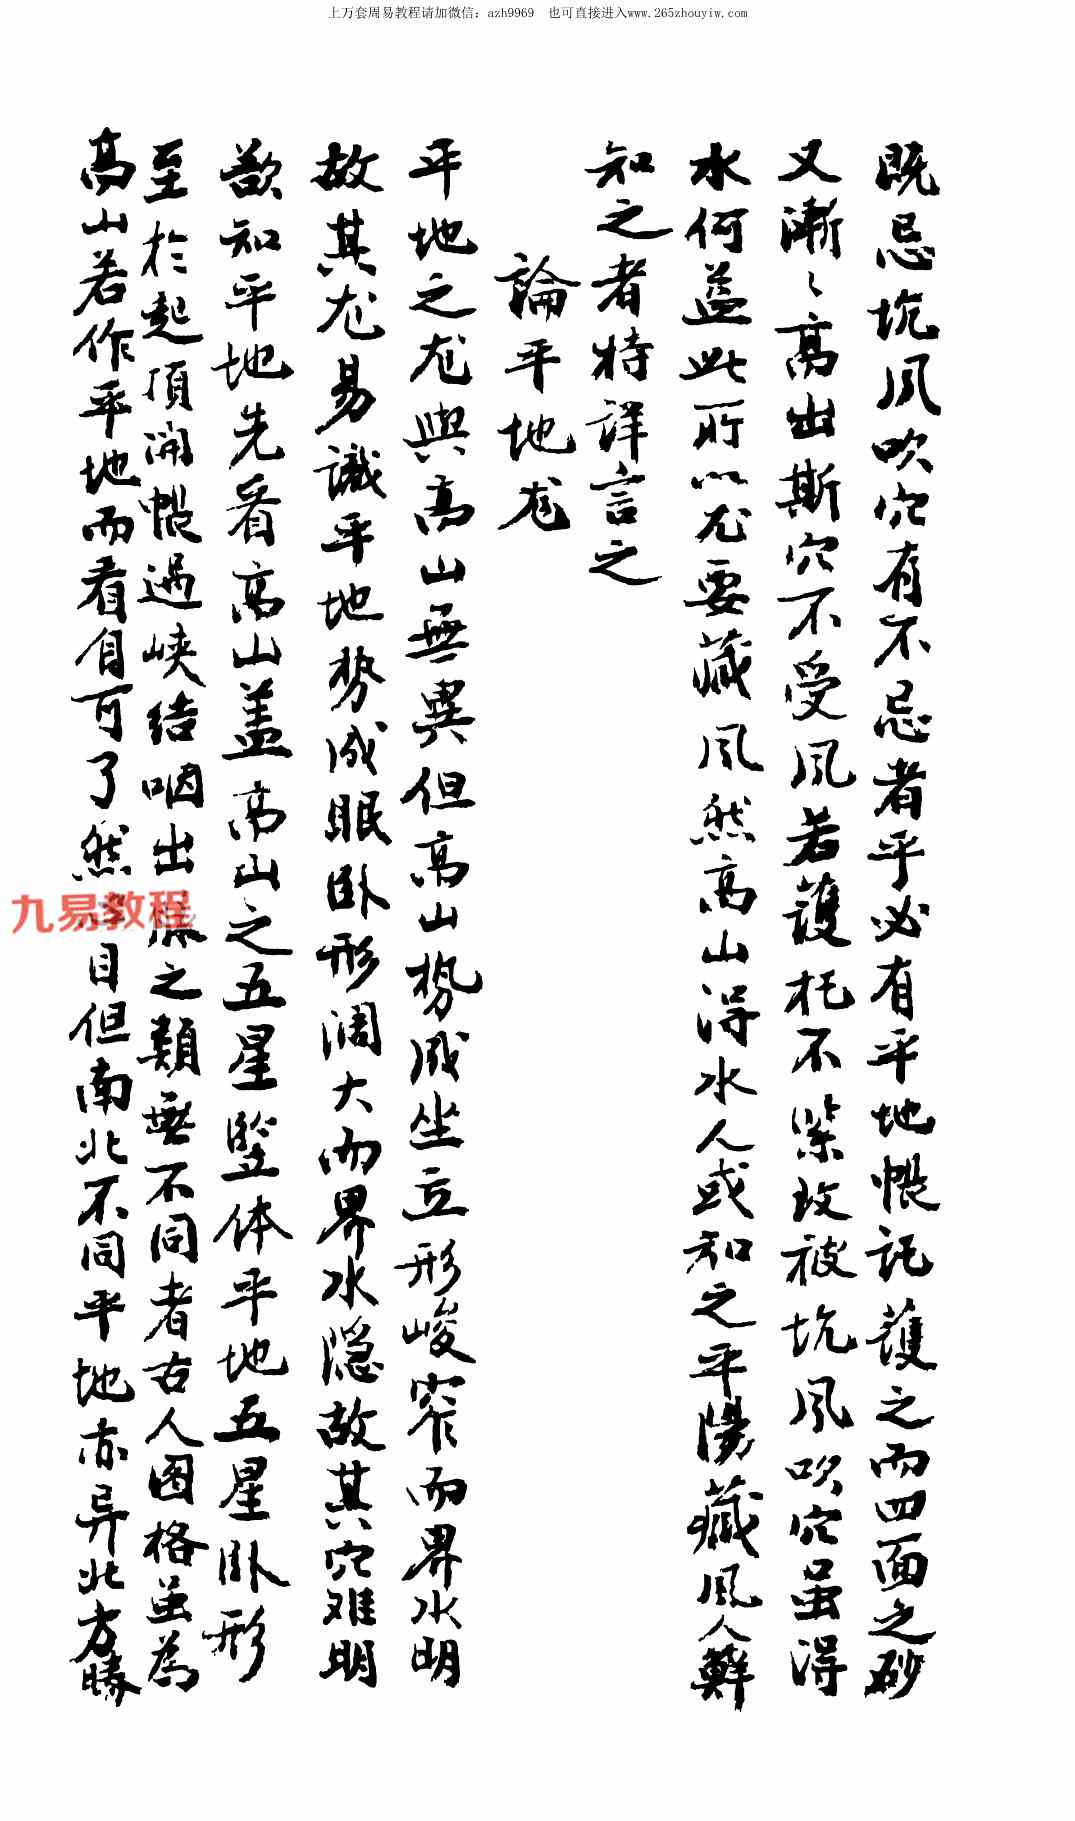 上万套周易教程请加微信：azh9969　也可直接进入www.265zhouyiw.com
既忌坑风吹穴有不忌者乎必有平地帳託護之而四面之砂
又漸〻高出斯穴不受风若護托不紧故被坑风吹穴虽得
水何益此所以尨要藏风然高山得水人或知之平陽藏风人鲜
知之者特详言之
論平地尨
平地之尨與高山無異但高山勢成坐立形峻窄而界水明
故其尨易識平地势成眠卧形阔大而界水隐故其穴难明
欲知平地先看高山盖高山之五星竖体平地五星卧形
至於起頂開帳過峡结咽出脉之類無不同者古人图格虽為
高山若作平地而看自可了然 目但南北不同平地亦异北方勝
九易教程